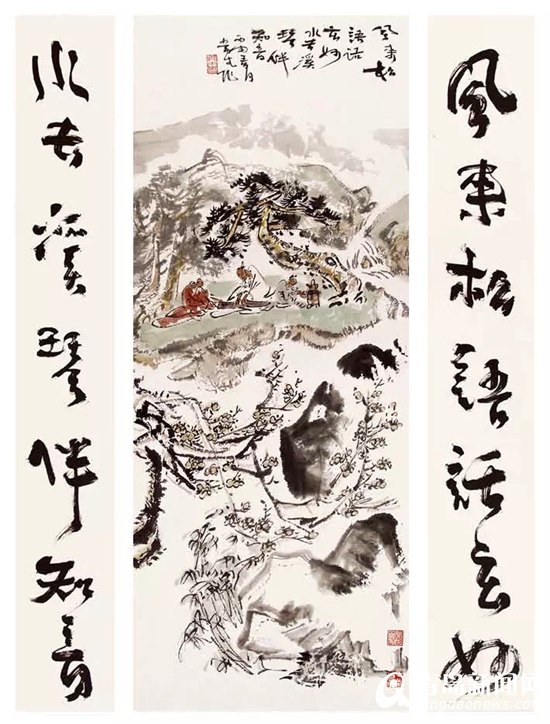 風来松語話玄妙
風来松
語話
玄妙
水去溪
琴伴
知音
水去溪琴伴知音
青岛新闻网
qingdaonews.com